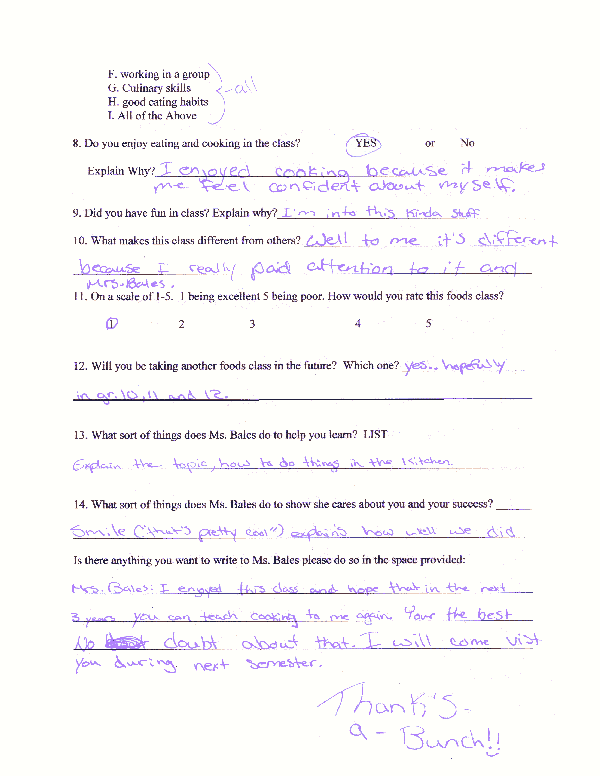 F. working in a group
G. Culinary skills - all
H. good eating habits
I. All of the Above
8. Do you enjoy eating and cooking in the class? YES or No
Explain Why? I enjoyed cooking because it makes
me feel confident about myself.
9. Did you have fun in class? Explain why? I'm into this kinda stuff
10. What makes this class different from others? Well to me it's different
because I really paid attention to it and
Mrs. Bales.
11. On a scale of 1-5. 1 being excellent 5 being poor. How would you rate this foods class?
1 2 3 4 5
12. Will you be taking another foods class in the future? Which one? yes.. hopefully
in gr. 10, 11 and 12.
13. What sort of things does Ms. Bales do to help you learn? LIST
Explain the topic, how to do things in the Kitchen.
14. What sort of things does Ms. Bales do to show she cares about you and your success?
Smile ("that's pretty cool") explains how well we did
Is there anything you want to write to Ms. Bales please do so in the space provided:
Mrs. Bales: I enjoyed this class and hope that in the next
3 years you can teach cooking to me again. Your the best
No doubt about that. I will come vist
you during next semester.
Thank's -
a - Bunch!!